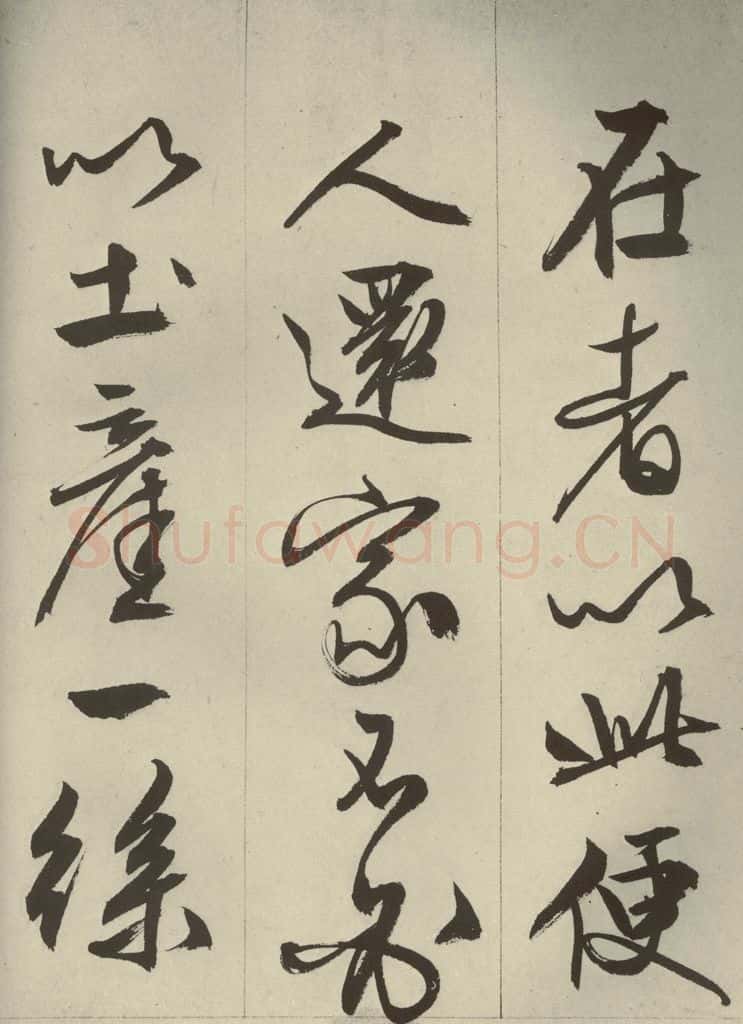 在者以此便
人還家不敢
以土産一絲
Shufawang.CN